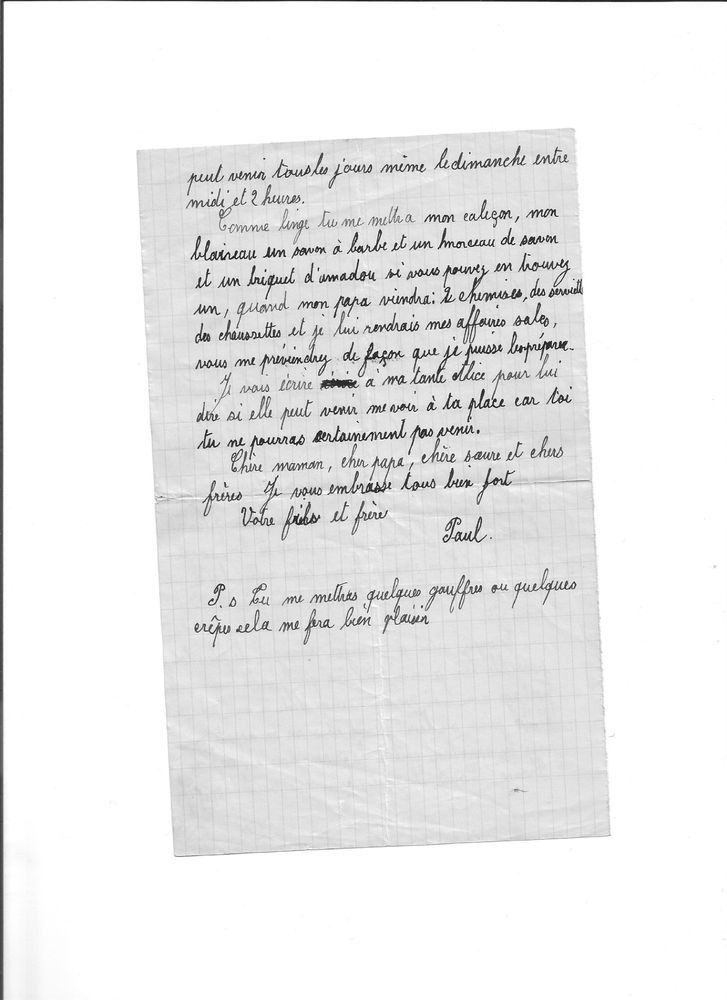 peut venir tous les jours même le dimanche entre
midi et 2 heures.
Comme linge tu me mettra mon caleçon, mon
blaireau un savon à barbe et un morceau de savon
et un briquet d'amadou si vous pouvez en trouvez
un, quand mon papa viendra: 2 chemises, des serviett
des chaussettes et je lui rendrais mes affaires sales,
vous me préviendrez de façon que je puisse les préparer.
Je vais écrire à ma tante Alice pour lui
dire si elle peut venir me voir à ta place car toi
tu ne pourras certainement pas venir.
Chère maman, cher papa, chère sœure et chers
frères Je vous embrasse tous bien fort
Votre fils et frère
Paul.
P.s Tu me mettras quelques gauffres ou quelques
crêpes sela me fera bien plaisir